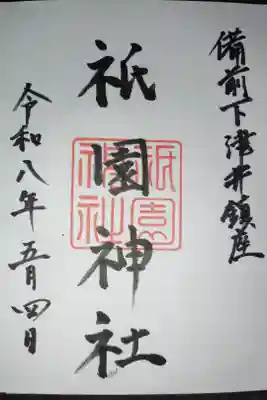 備前下津井鎮座
祇園神社
祇園
神社
令和八年五月四日